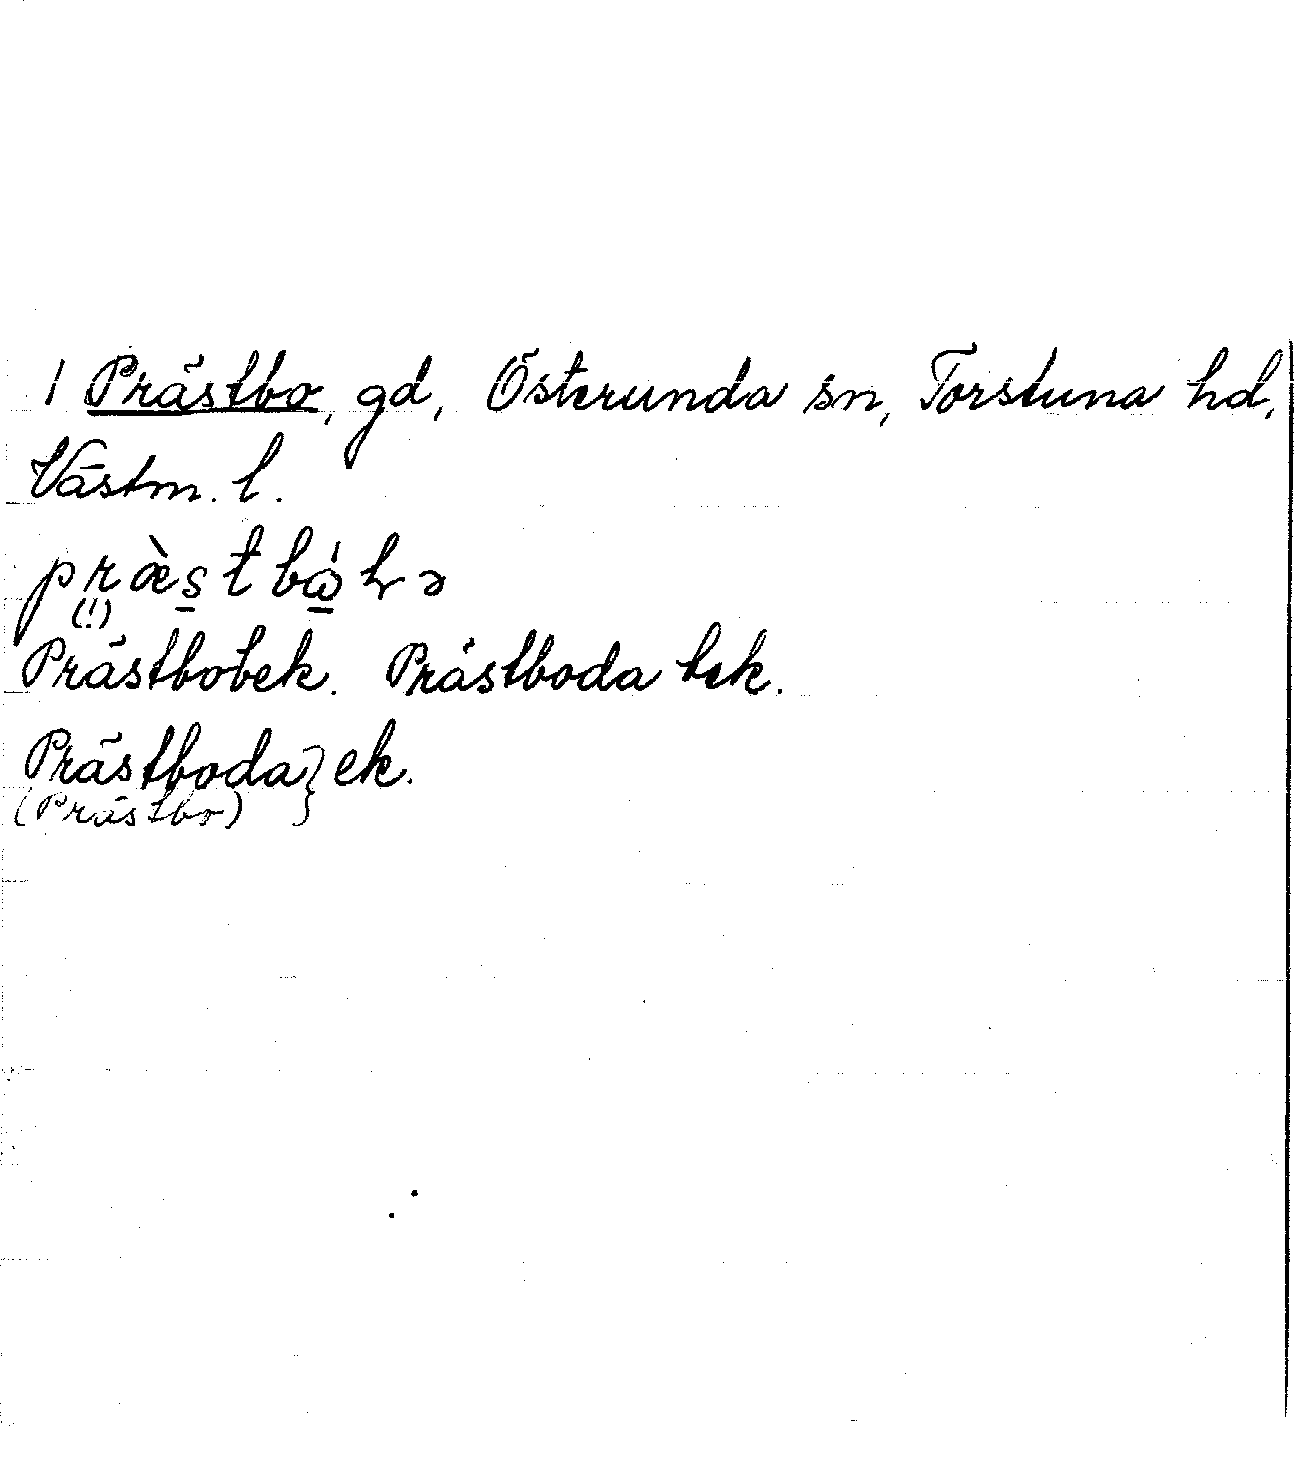 1 Prästbo, gd, Österunda sn, Torstuna hd,
Västm. l.
(!)
Prästbobek. Prästboda bek.
Prästboda} ek.
(Prästbo)